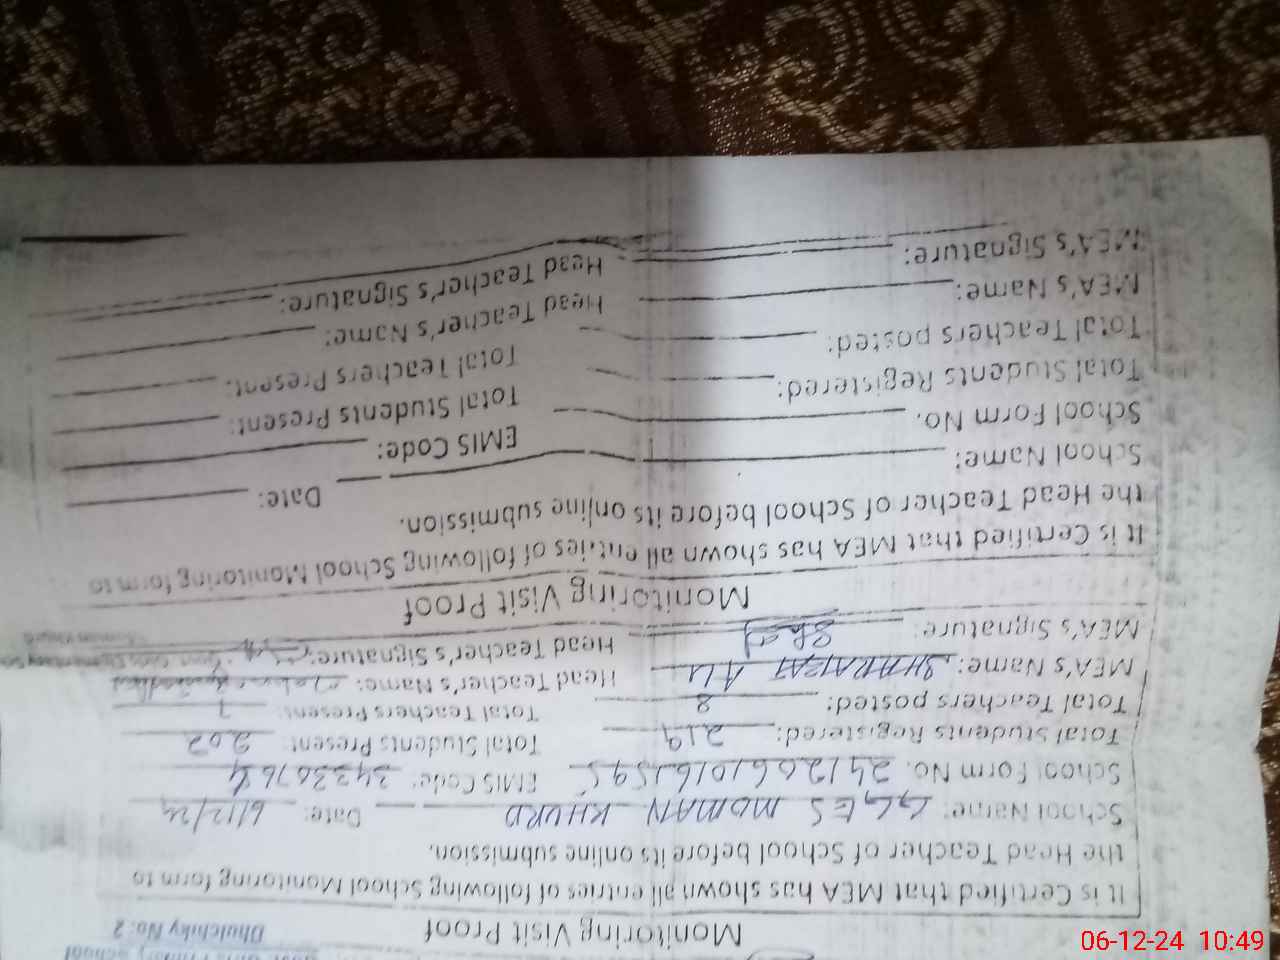 Dhulchiky No: 2
Monitoring Visit Proof
It is Certified that MEA has shown all entries of following School Monitoring form to
the Head Teacher of School before its online submission.
School Name: GGES MOMAN KHURD Date: 6/12/24
School Form No. 24120610161595 EMIS Code: 34330764
Total Students Registered: 219 Total Students Present: 202
Total Teachers posted: 8 Total Teachers Present: 7
MEA's Name: SHARAFAT ALI Head Teacher's Name:
MEA's Signature: Head Teacher's Signature:
Monitoring Visit Proof
It is Certified that MEA has shown all entries of following School Monitoring form to
the Head Teacher of School before its online submission.
School Name: Date:
School Form No. EMIS Code:
Total Students Registered: Total Students Present:
Total Teachers posted: Total Teachers Present:
MEA's Name: Head Teacher's Name:
MEA's Signature: Head Teacher's Signature:
06-12-24 10:49